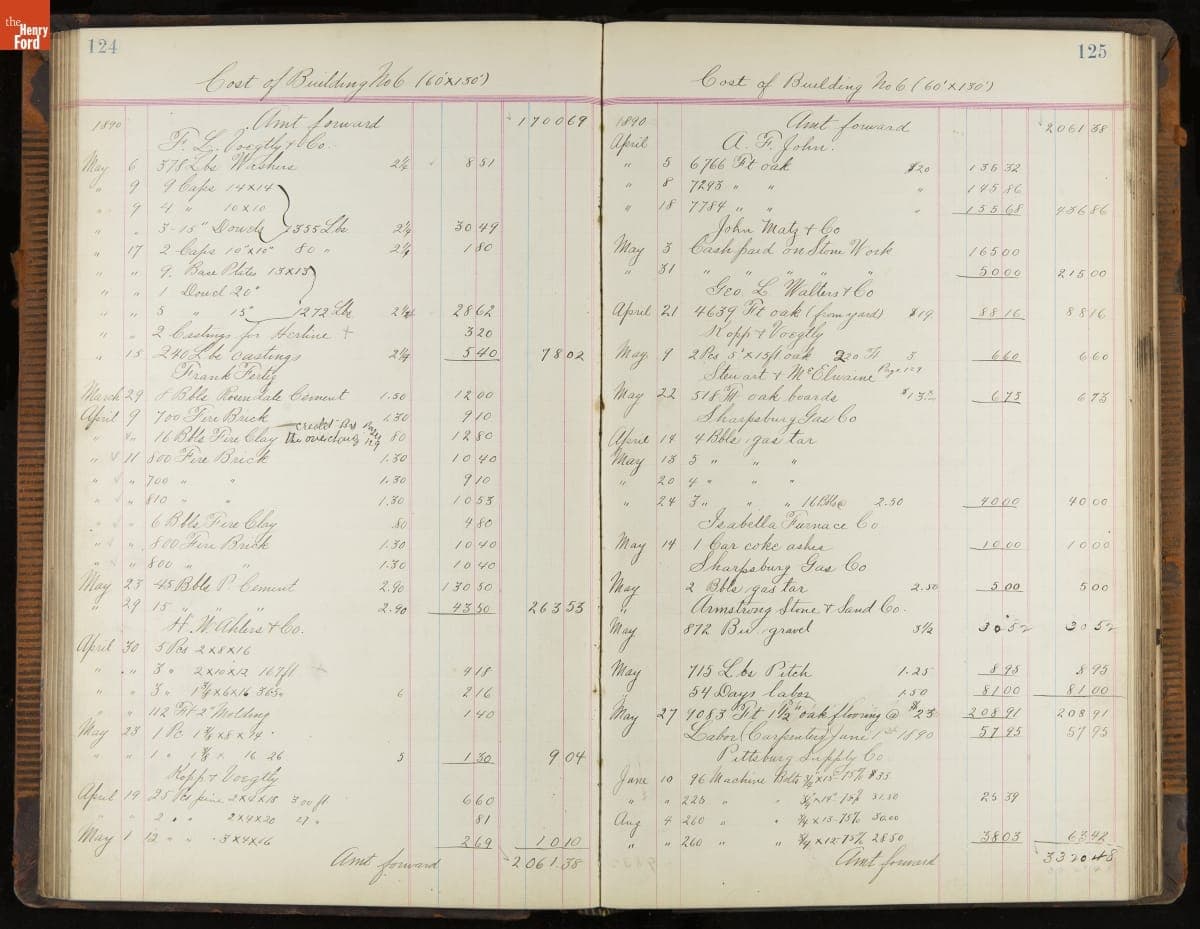 the
Henry
Ford
124
Cost of Building No 6 (60'x130')
1890 Amt forward 1700 69
F. L. Voegtly & Co.
May 6 378 Lbs Washers 2¼ 8 51
" 9 9 Caps 14x14
" 9 4 " 10x10
" " 3-15" Dowels 1355 Lbs 2¼ 30 49
" 17 2 Caps 10"x10" 80 " 2¼ 1 80
" " 9 Base Plates 13x13
" " 1 Dowel 20"
" " 5 " 15" 1272 Lbs 2¼ 28 62
" " 2 Castings for + 3 20
" 15 240 Lbs castings 2¼ 5 40 78 02
Frank Fertig
March 29 8 Bbls Rosendale Cement 1.50 12 00
April 9 700 Fire Brick 1.30 9 10
" " 16 Bbls Fire Clay 80 12 80
credit By Page 129
the overcharge
" 11 800 Fire Brick 1.30 10 40
" " 700 " " 1.30 9 10
" " 810 " " 1.30 10 53
" " 6 Bbls Fire Clay .80 4 80
" " 800 Fire Brick 1.30 10 40
" " 800 " " 1.30 10 40
May 23 45 Bbls P. Cement 2.90 130 50
" 29 15 " " " 2.90 43 50 263 53
H. W. Ahlers & Co.
April 30 5 Pcs 2x8x16
" " 3 " 2x10x12 167 ft + 4 18
" " 3 " 1¾x6x16 36 " 6 2 16
" " 112 Ft 2" Molding 1 40
May 23 1 Pc 1¾x8x14
" " 1 " 1⅞x 16 26 5 1 30 9 04
Kopp & Voegtly
April 19 25 Pcs pine 2x4x18 300 ft 6 60
" 2 " " 2x4x20 27 " 81
May 1 12 " " 3x4x16 2 69 10 10
Amt forward 2061.38
125
Cost of Building No 6 (60'x130')
1890 Amt forward 2061 38
April A. F. John.
" 5 6766 Ft oak $20 135 32
" 8 7293 " " " 145 86
" 18 7784 " " " 155.68 436 86
John Matz & Co
May 3 Cash paid on Stone Work 165 00
" 31 " " " " " 50 00 215 00
Geo. L. Walters & Co
April 21 4639 Ft oak (from yard) $19 88 16 88 16
Kopp & Voegtly
May 9 2 Pcs 5"x15 ft oak 220 Ft 3 6 60 6 60
Stewart & McElwaine Page 129
May 22 518 Ft oak boards $13 6 73 6 73
Sharpsburg Gas Co
April 14 4 Bbls gas tar
May 13 5 " " "
" 20 4 " " "
" 24 3 " " " 16 Bbls 2.50 40 00 40 00
Isabella Furnace Co
May 14 1 Car coke ashes 10 00 10 00
Sharpsburg Gas Co
May 2 Bbls gas tar 2.50 5 00 5 00
" Armstrong Stone & Sand Co.
May 872 Bu gravel 3½ 30 52 30 52
May 715 Lbs Pitch 1.25 8 95 8 95
54 Days labor 1.50 81 00 81 00
May 27 9083 Ft 1½" oak flooring @ $23 208 91 208 91
Labor (Carpenter) June 1st 1890 57 95 57 95
Pittsburg Supply Co
June 10 96 Machine Bolts ¾"x15-75% $35
" " 225 " " ¾"x14" 75% 31.50 25 39
Aug 4 260 " " ¾x13-75% 30.00
" " 260 " " ¾x12-75% 28.50 38 03 63 42
Amt forward 3320 48